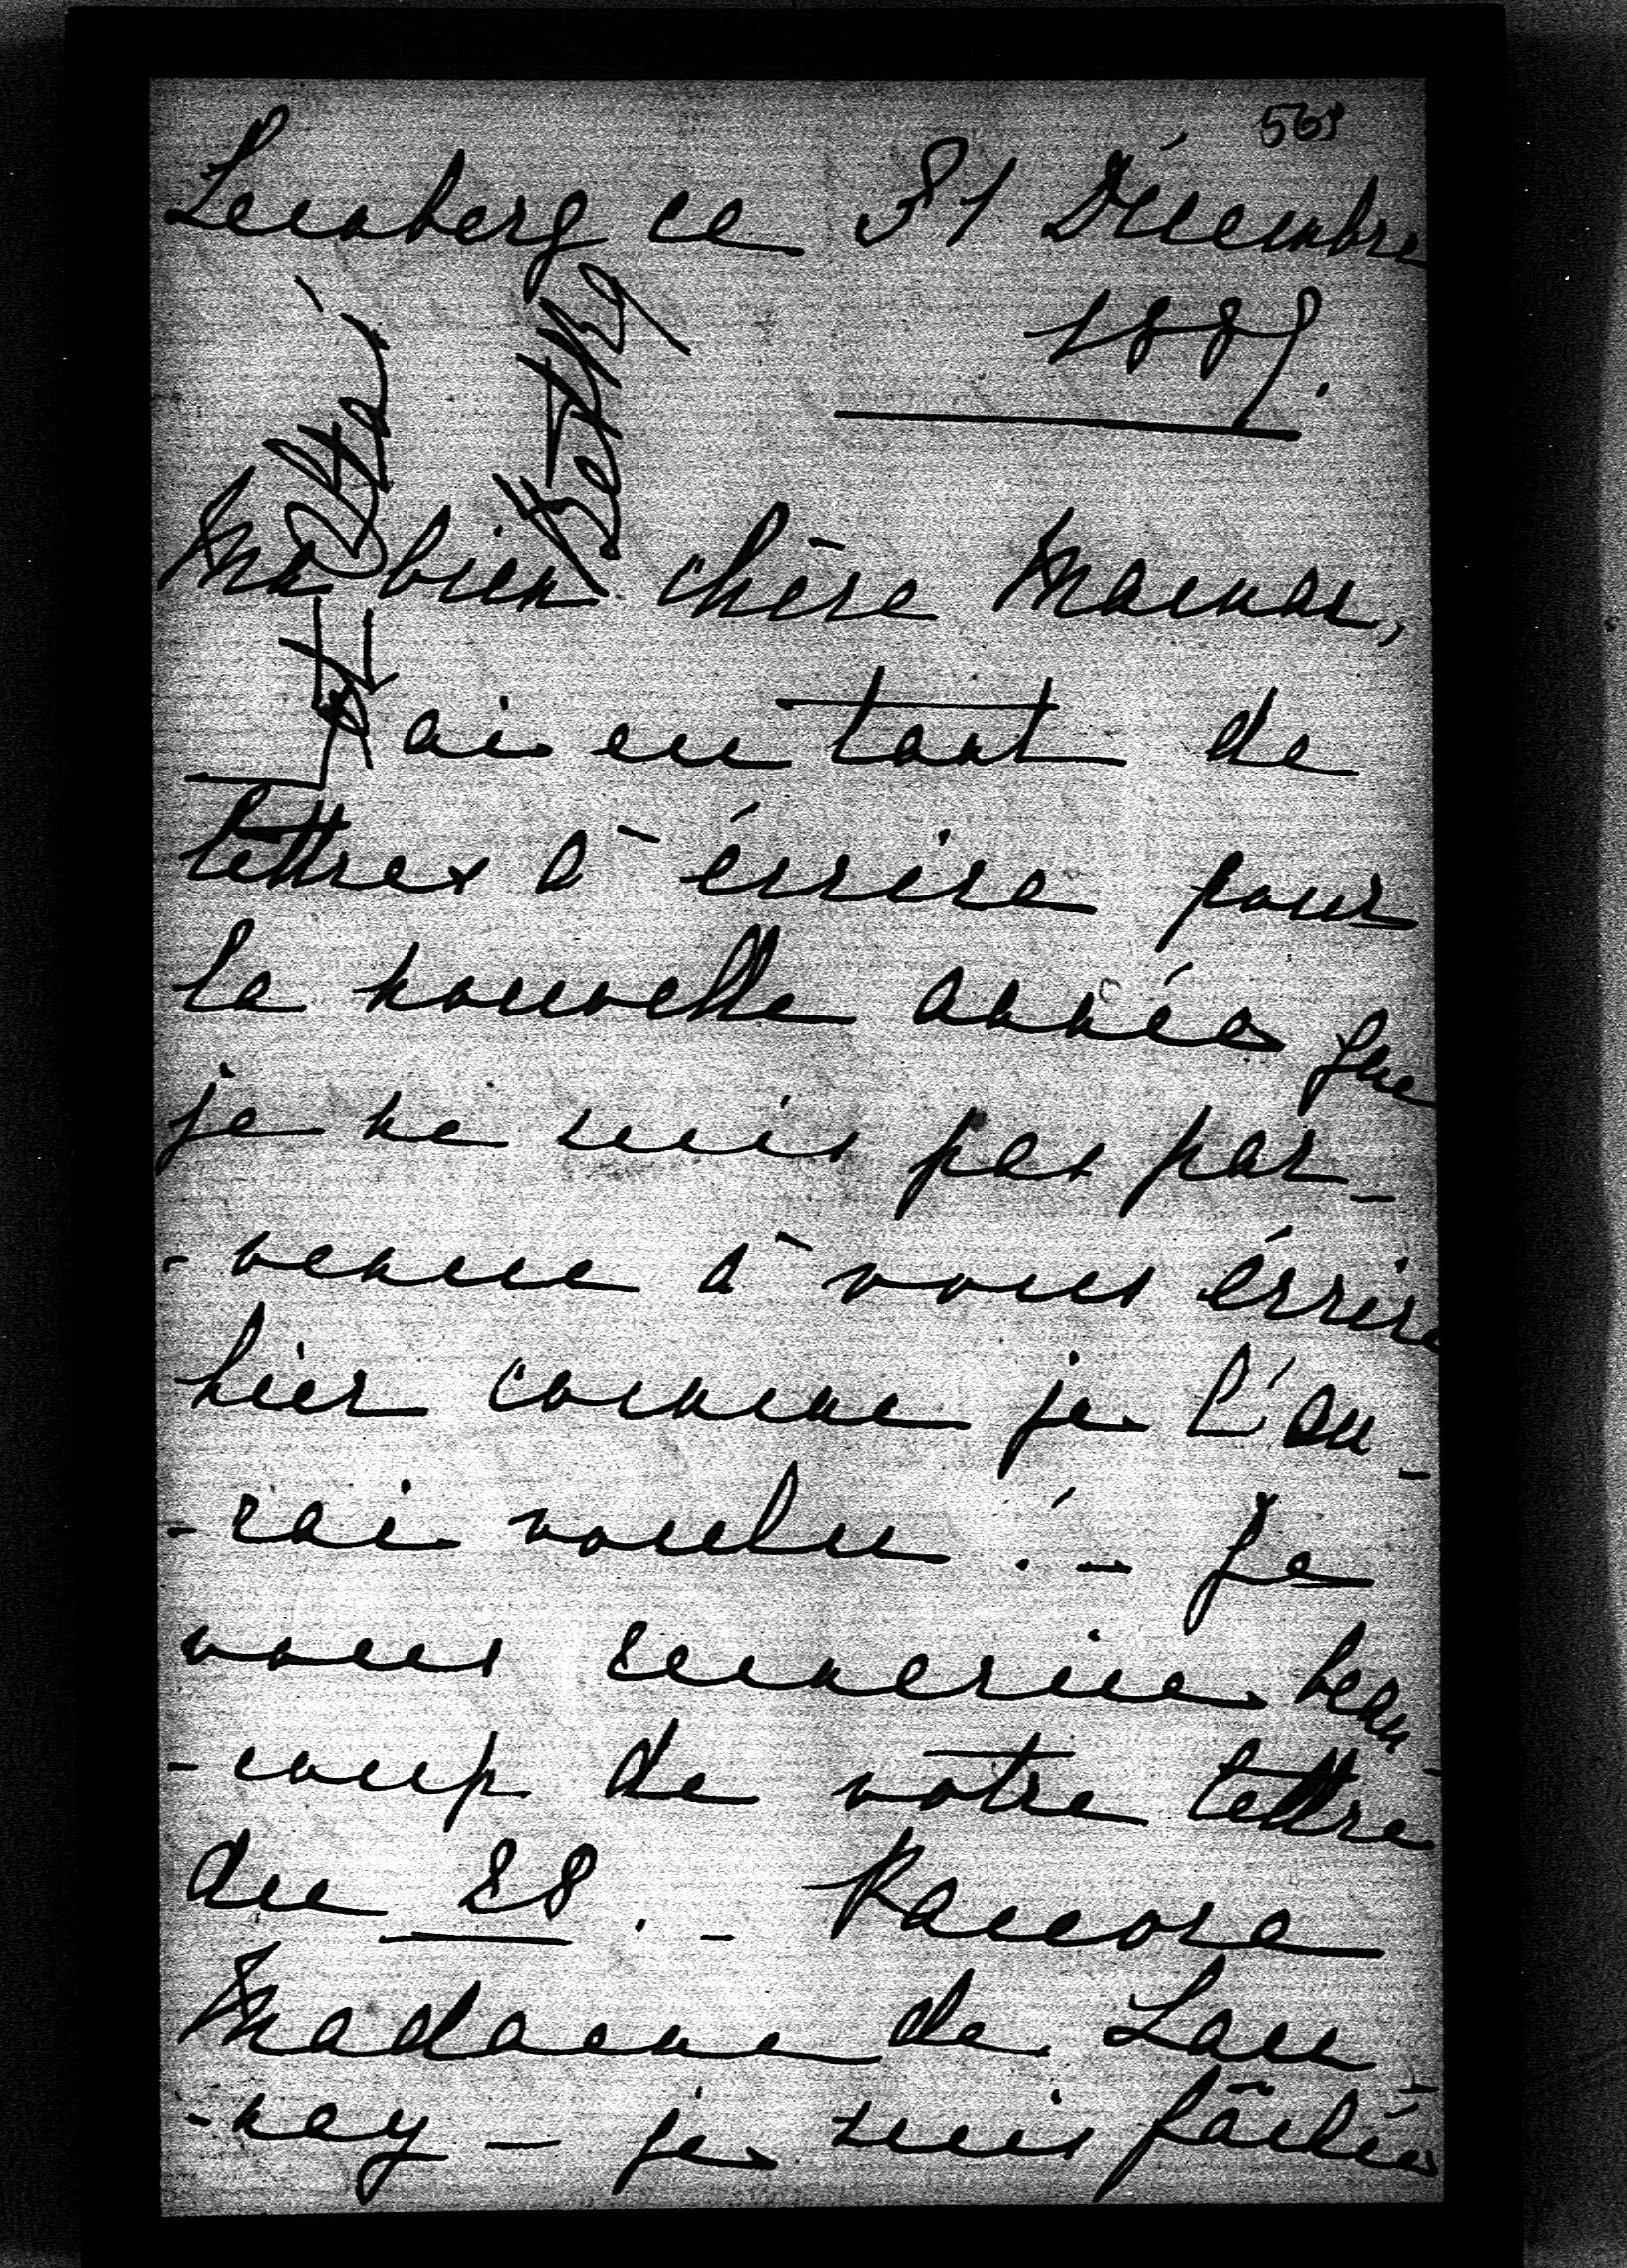 569
Lemberg ce 31 Décembre
1889.
Ma bien chère Maman,
J'ai eu tant de
lettres à écrire pour
la nouvelle année que
je ne suis pas par-
-venue à vous écrire
hier comme je l'au-
-rai voulu! - Je
vous remercie beau-
-coup de votre lettre
du 28. - Pauvre
Madame de Lau-
-nay - je suis fâchée